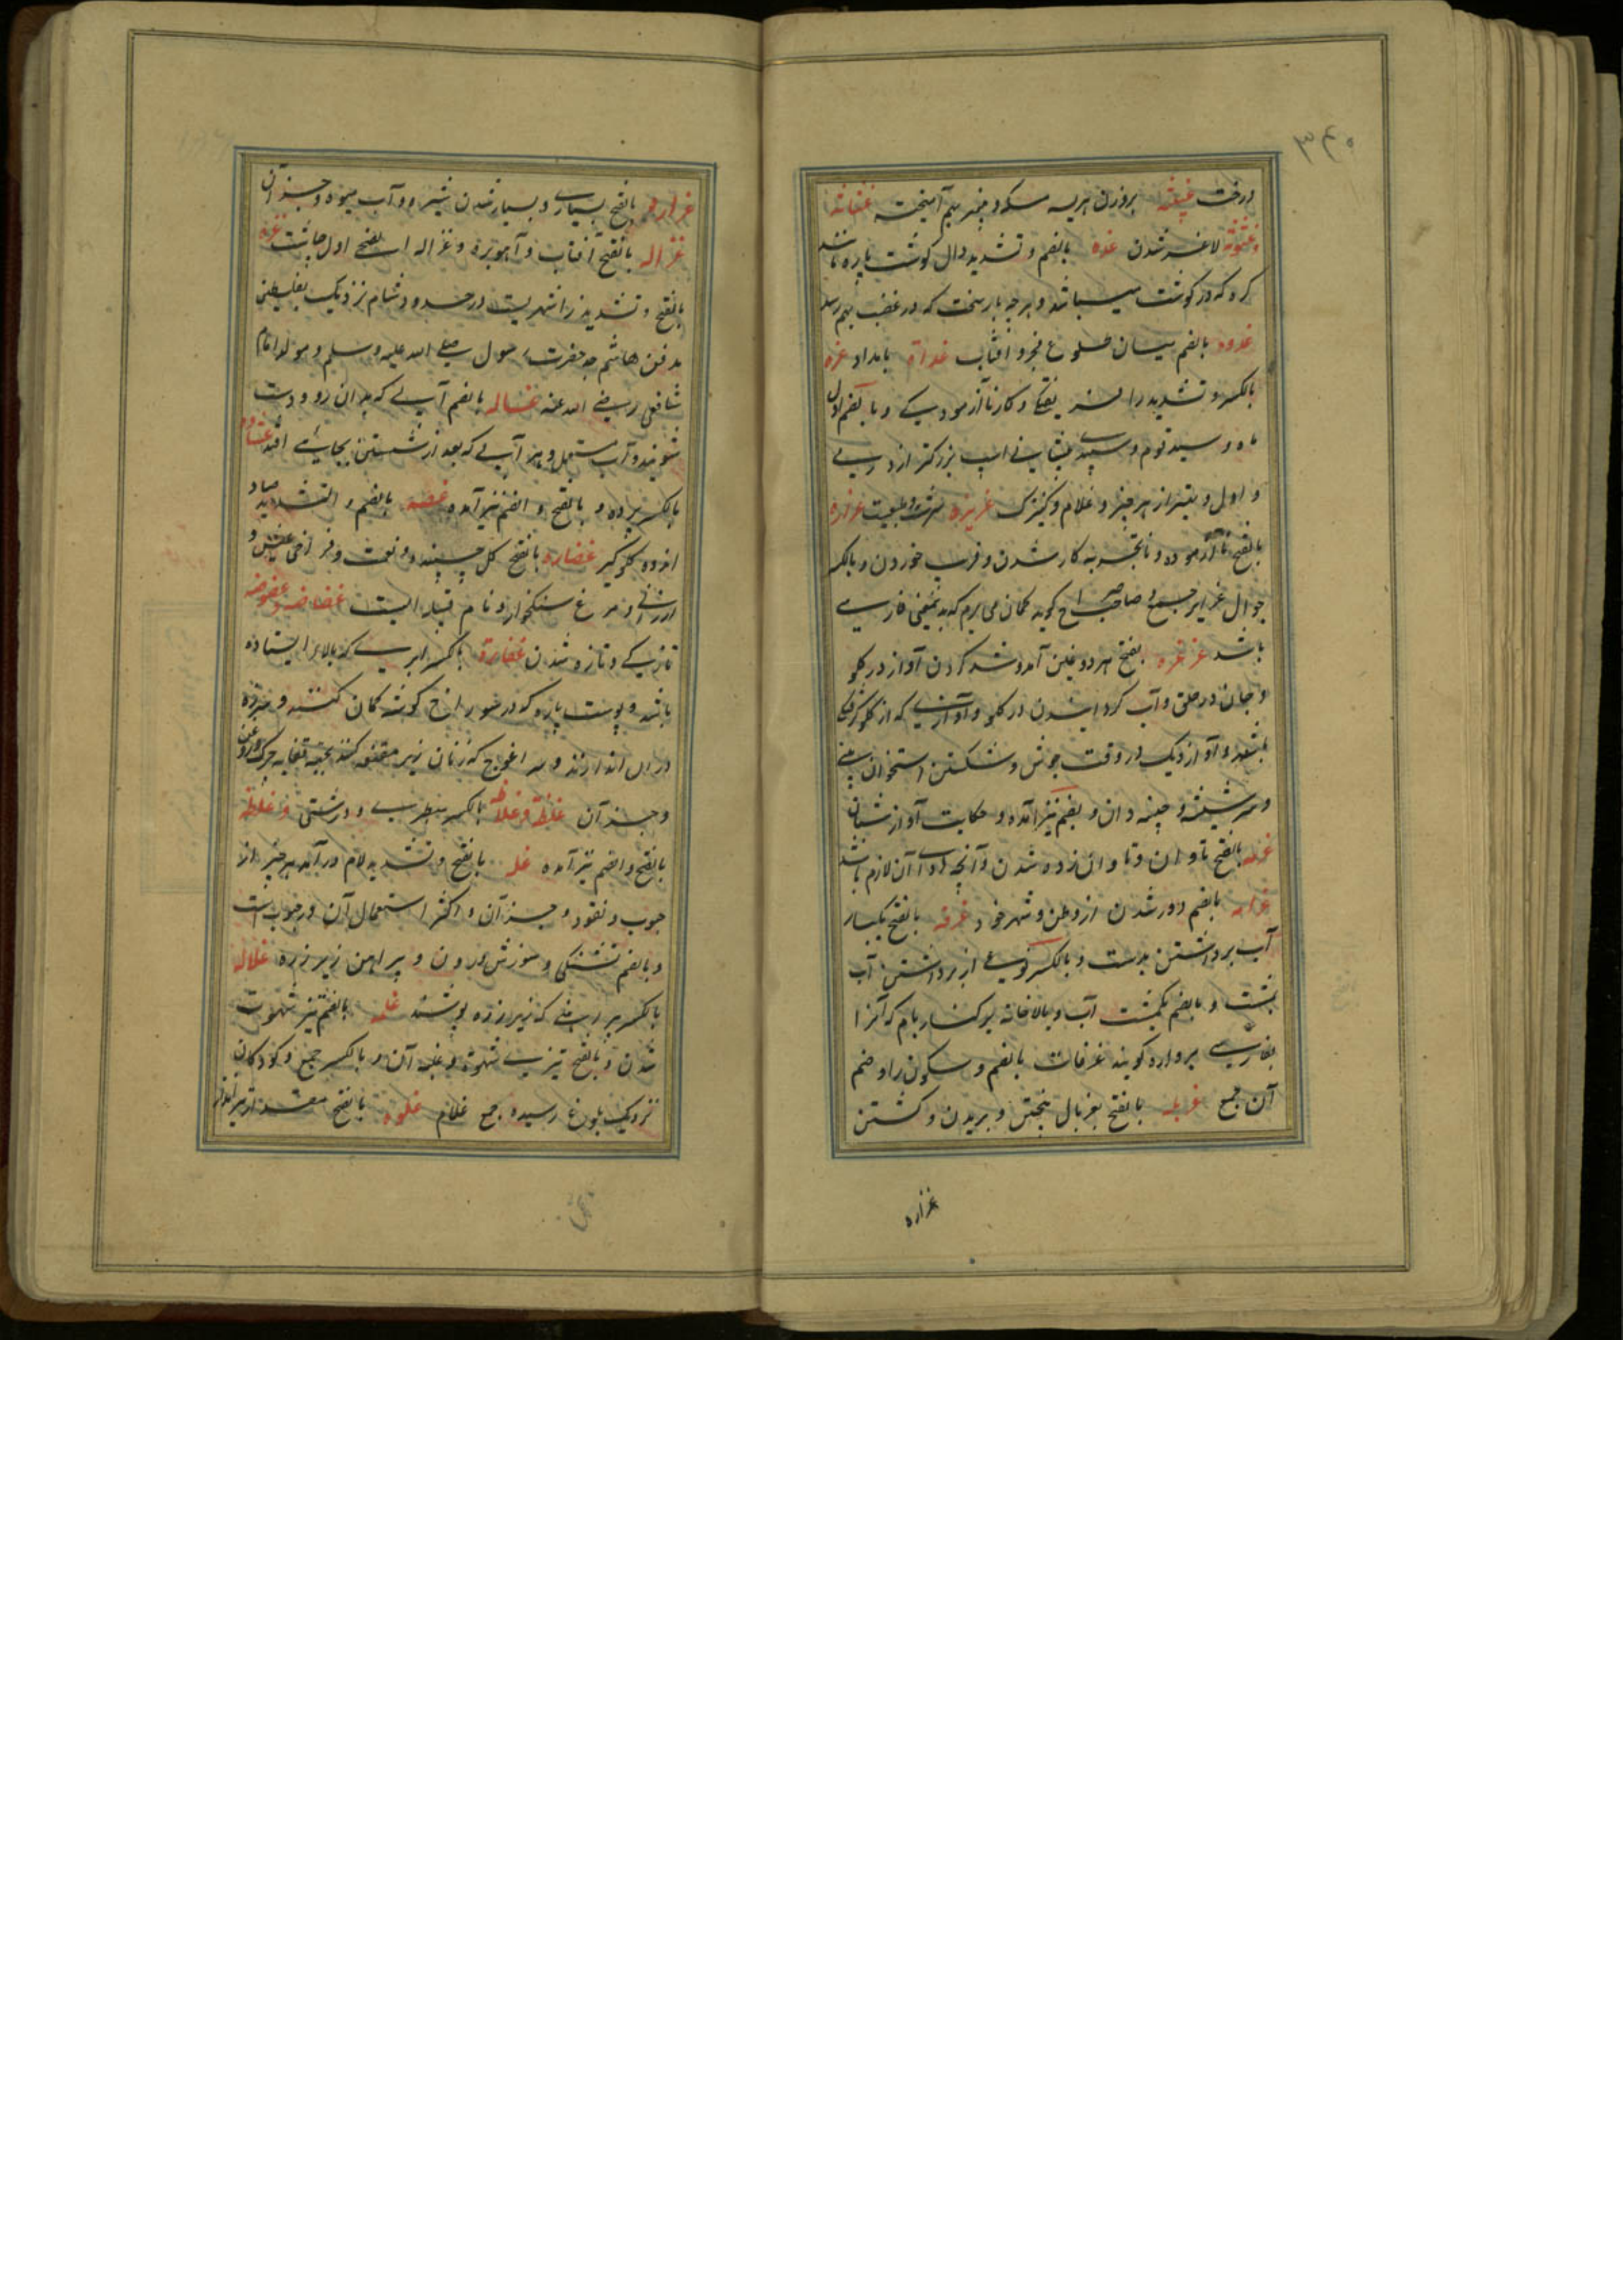 ۳۶۵
درخت غبیثه بروزن هریسه مسکه و پنیر بهم آمیخته غثاثه
و غثوثه لاغر شدن غده بالضم و تشدید دال گوشت پاره باشد
گرد که در گوشت میباشد و هر چه بار سخت که در عصب بهم رسد
غدوه بالضم میان طلوع فجر و آفتاب غداة بامداد غره
بالکسر و تشدید را فریفتگی و کار ناآزمودگی و بالضم اول
ماه و سید قوم و سپیدی پیشانی اسپ بزرگتر از درمی
و اول و بهتر از هر چیز و غلام و کنیزک غریزه سرشت و طبیعت غراره
بالفتح ناآزموده و ناتجربه کار شدن و فریب خوردن و بالکسر
جوال غرایر جمع و صاحب صراح گوید گمان می برم که بدین معنی فارسی
باشد غرغره بفتح هر دو غین آمد و شد کردن آواز در گلو
و جان در حلق و آب گردانیدن در گلو و آوازی که از گلو
بشود و آواز دیگ در وقت جوش و شکستن استخوان بینی
و سر شیشه و چینه دان و بضم نیز آمده و حکایت آواز شبان
غرامه بالفتح تاوان و تاوان زده شدن و آنچه ادای آن لازم باشد
غرابه بالضم دور شدن از وطن و شهر خود غرفه بالفتح یکبار
آب برداشتن بدست و بالکسر نوعی از برداشتن آب
بمشت و بالضم یکمشت آب و بالاخانه بر کنار بام که آنرا
بفارسی برواره گویند غرفات بالضم و سکون را و ضم
آن جمع غربله بالفتح بغربال بیختن و بریدن و کشتن
غزاره
غزاره بالفتح بسیاری و بسیار شدن شیر و آب میوه و جز آن
غزاله بالفتح آفتاب و آهوبره و غزاله الضحی اول چاشت غزه
بالفتح و تشدید زا شهریست در حدود شام نزدیک بفلسطین
مدفن هاشم جد حضرت رسول صلی الله علیه وسلم و مولد امام
شافعی رضی الله عنه غساله بالضم آبی که بدان رو و دست
شویند و آب مستعمل و هر آبی که بعد از شستن بجائی افتد غشاوه
بالکسر پرده و بالفتح و الضم نیز آمده غصه بالضم و التشدید صاد
اندوه گلوگیر غضاره بالفتح گل چسپنده و نعمت و فراخی عیش و
ارزانی و مرغ سنگخوار و نام قبیله ایست غضاضه و غضوضه
تازگی و تازه شدن غفاره بالکسر ابری که بالای ابر ایستاده
باشد و پوست پاره که در سوراخ گوشه کمان کنند و خرقه
در آن اندازند و سر اغوج که زنان زیر مقنعه کنند بجهة وقایه چرک و روغن
و جز آن غلظة و غلاظة بالکسر سطبری و درشتی و غلظه
بالفتح و الضم نیز آمده غله بالفتح و تشدید لام درآمد هر چیز از
حبوب و نقود و جز آن و اکثر استعمال آن در حبوب است
و بالضم تشنگی و سوزش درون و پیراهن زیر زره غلاله
بالکسر پیراهنی که زیر زره پوشند غلمه بالضم تیز شهوت
شدن و بالفتح تیزی شهوت و غلبه آن و بالکسر جمع و کودکان
نزدیک بلوغ رسیده جمع غلام غلوه بالفتح مقدار تیر انداز